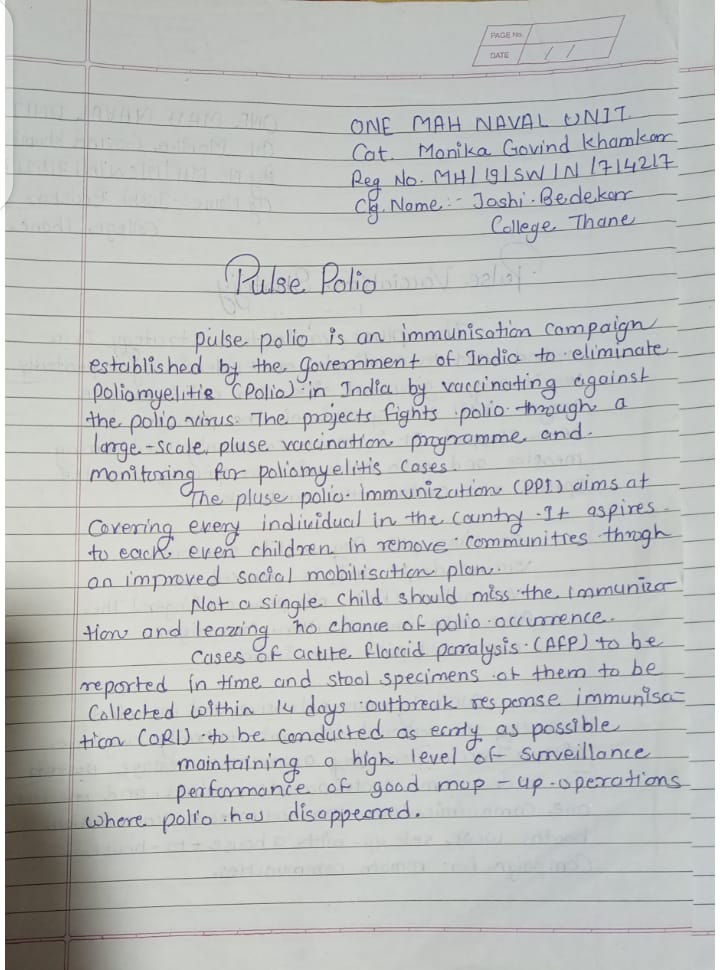 PAGE No.
DATE / /
ONE MAH NAVAL UNIT.
Cat. Monika Govind Khamkar
Reg No. MH/19/SW/N/714217
Clg. Name:- Joshi. Bedekar
College Thane
Pulse Polio
pulse polio is an immunisation campaign
established by the government of India to eliminate
Poliomyelitis (Polio) in India by vaccinating against
the polio virus. The projects fights polio through a
large-scale pluse vaccination programme and
monitoring for poliomyelitis cases.
The pluse polio Immunization (PPI) aims at
Covering every individual in the country. It aspires
to each even children in remove communities throgh
an improved social mobilisation plan.
Not a single child should miss the immuniza
tion and leazing no chance of polio occurrence.
Cases of actute flaccid paralysis (AFP) to be
reported in time and stool specimens of them to be
Collected within 14 days outbreak response immunisa-
tion (ORI) to be conducted as early as possible
maintaining a high level of surveillance
performance of good mop-up operations
where polio has disappeared.